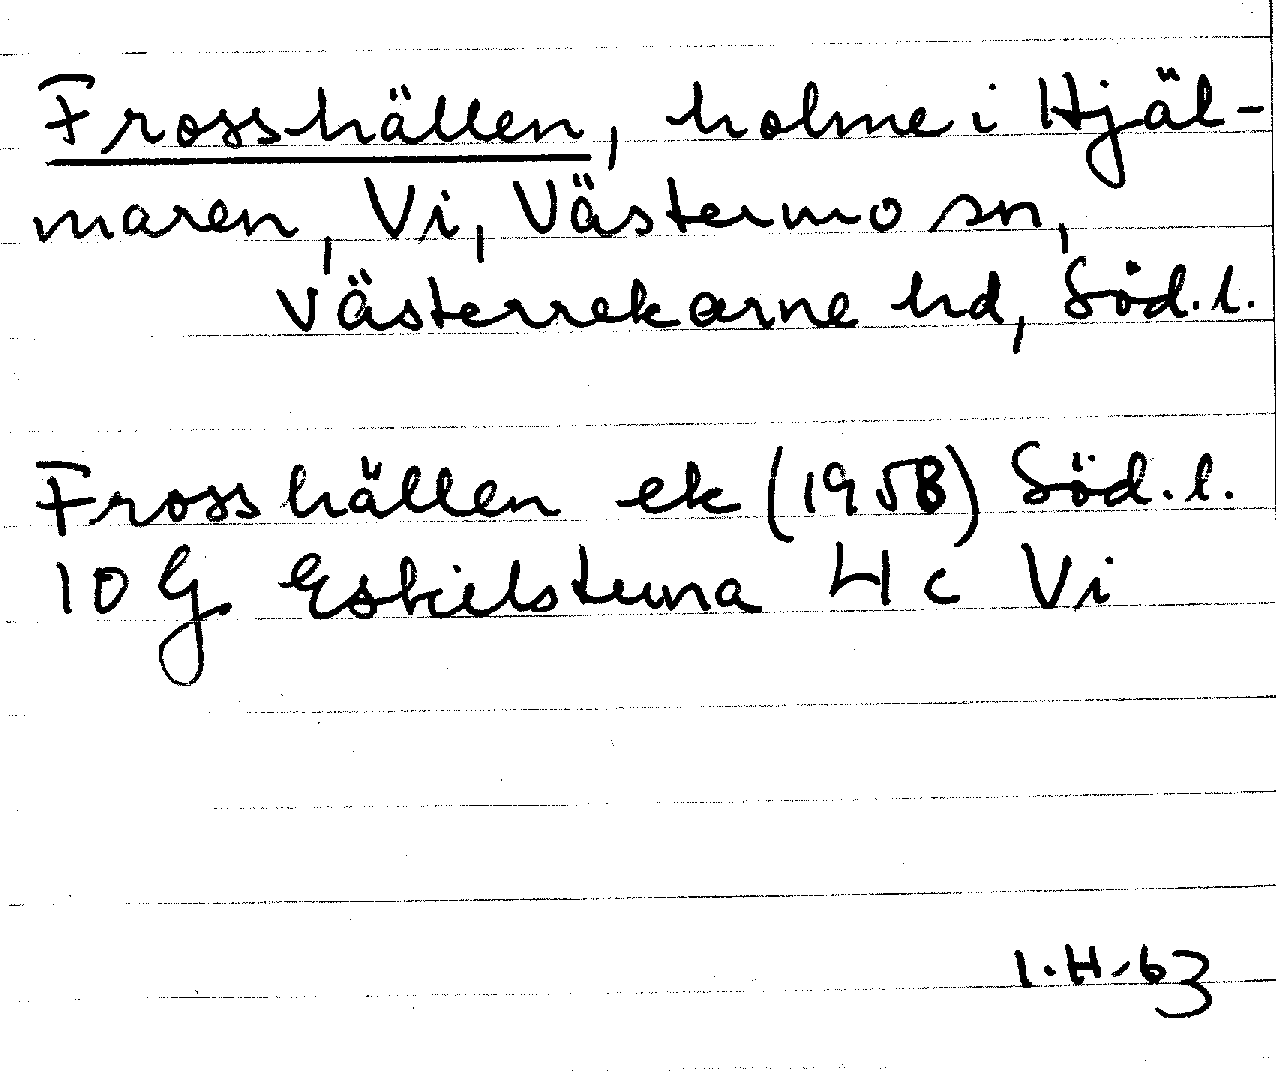 Frosshällen, holme i Hjäl-
maren, Vi, Västermo sn,
Västerrekarne hd, Söd. l.
Frosshällen ek (1958) Söd. l.
10 G Eskilstuna 4 c Vi
I.H-63